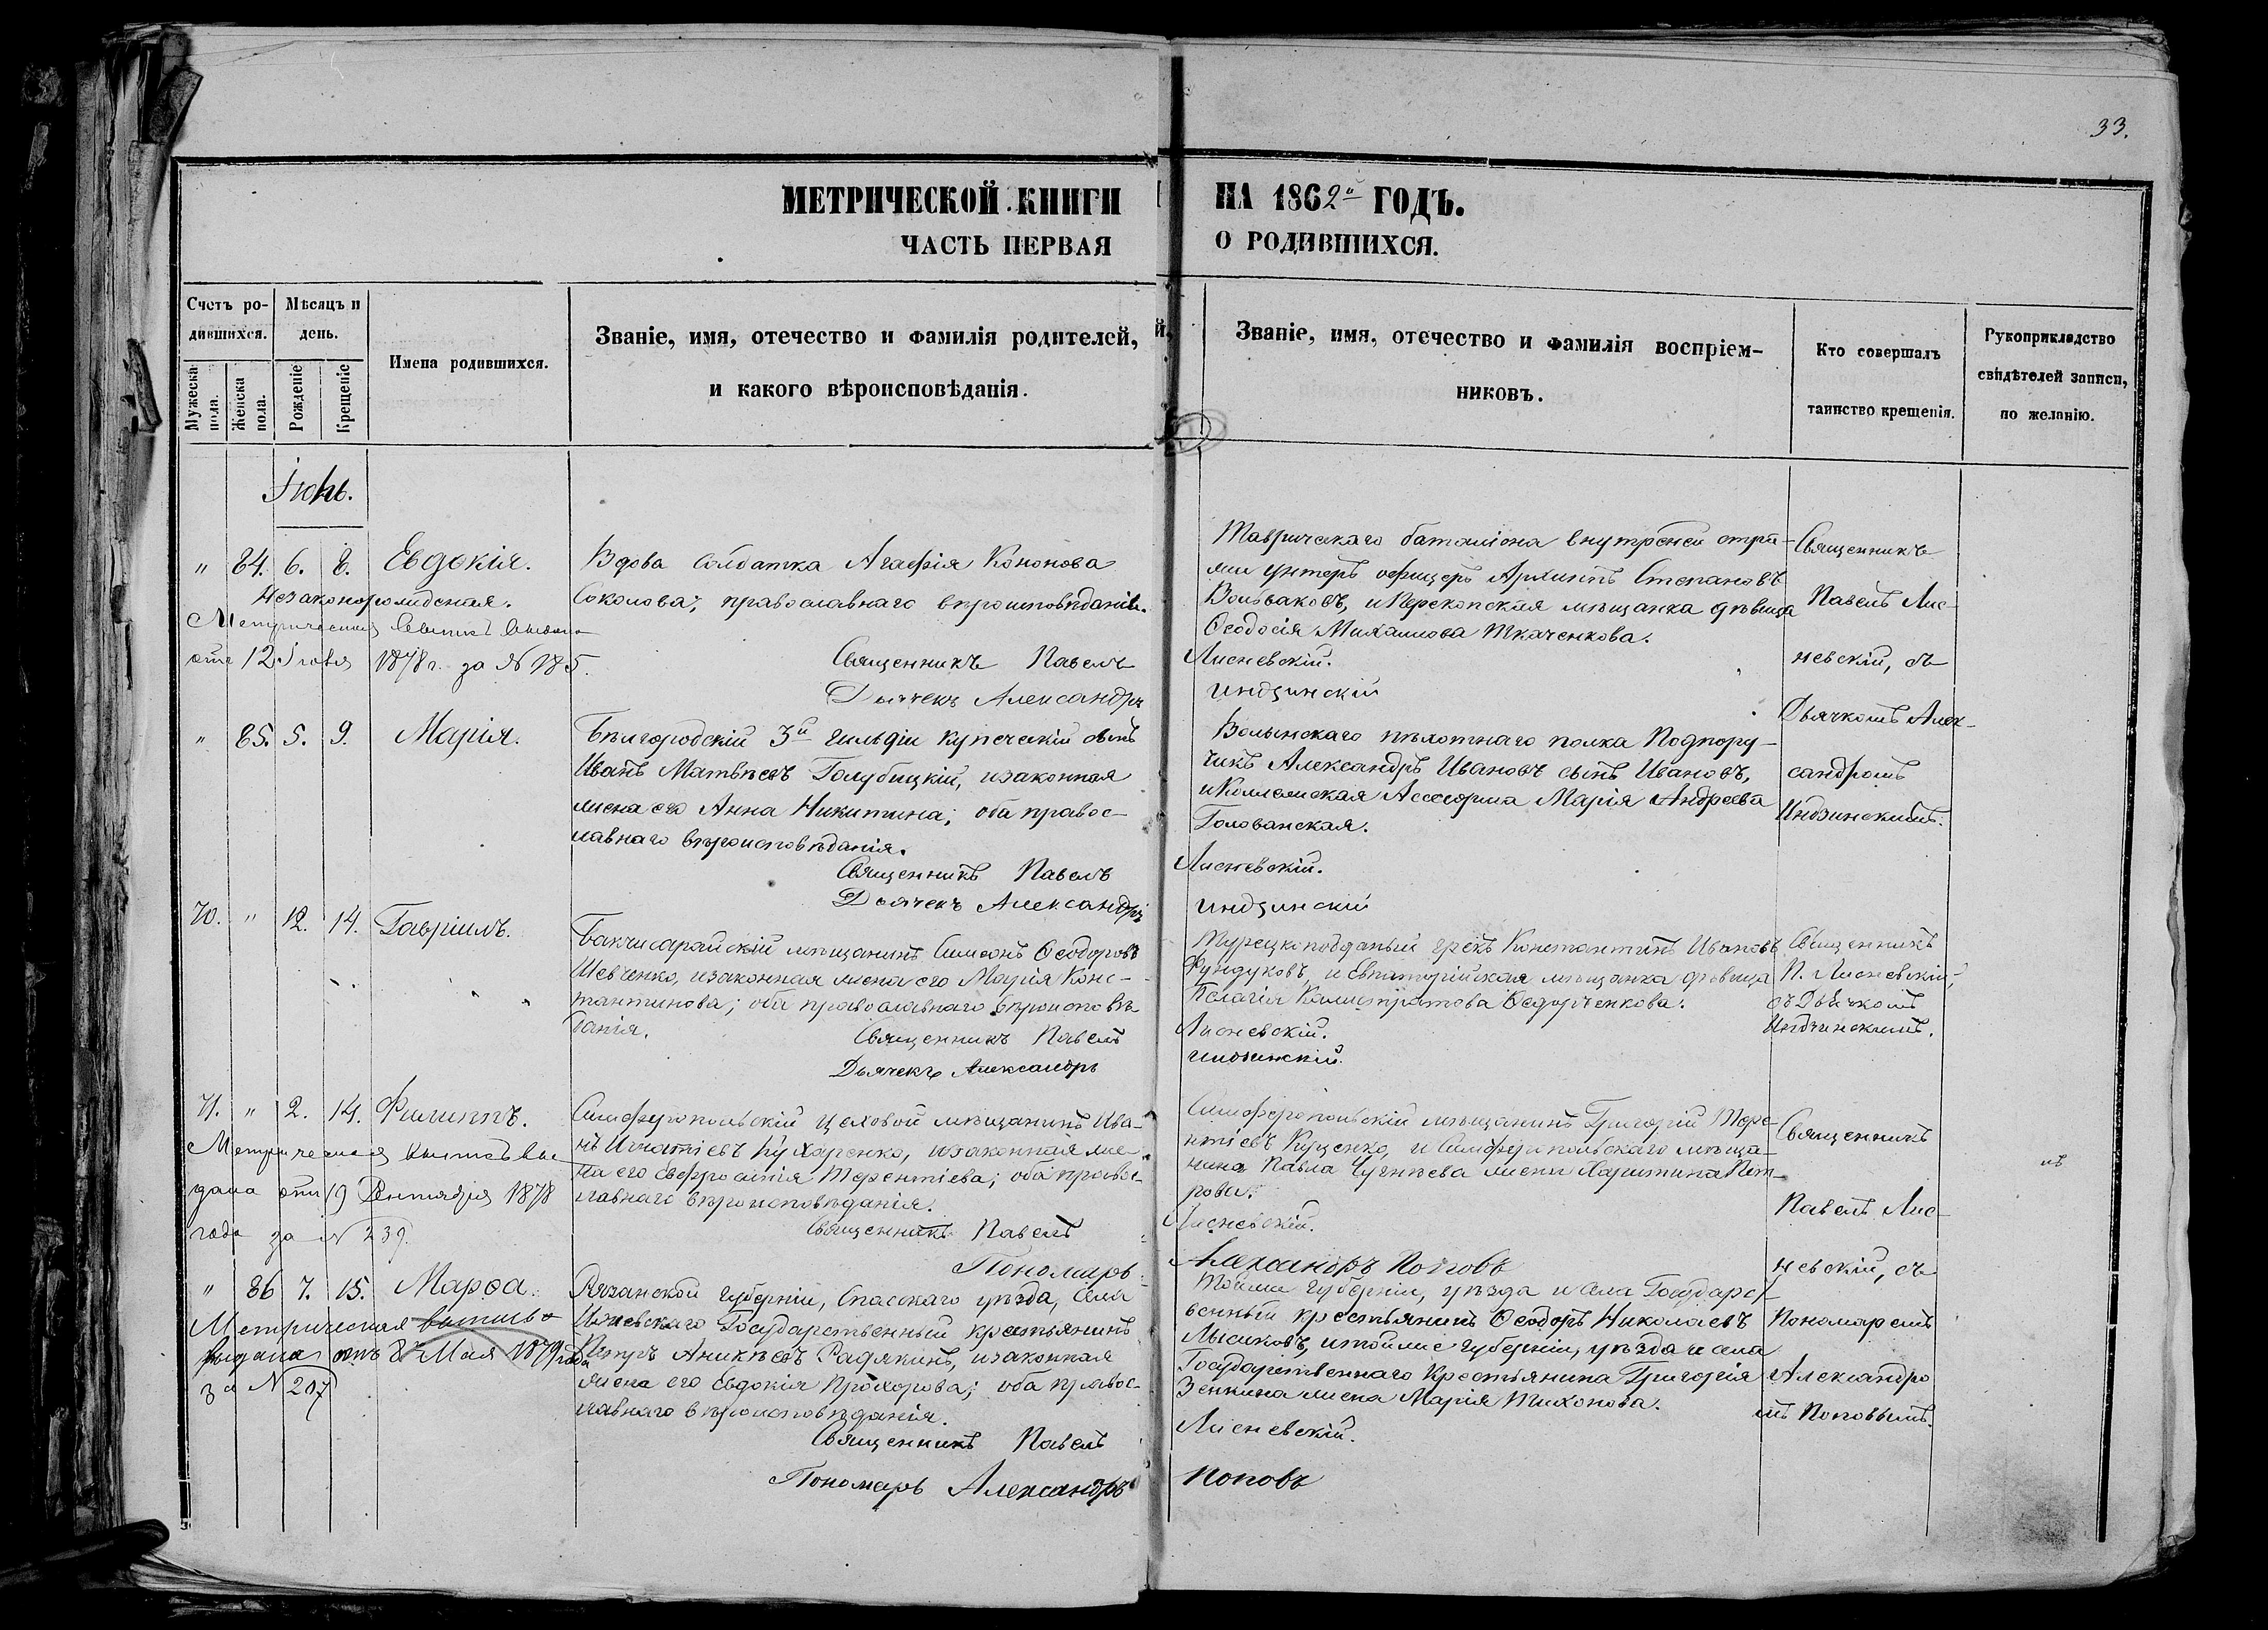 33.
МЕТРИЧЕСКОЙ КНИГИ НА 1862й ГОДЪ.
ЧАСТЬ ПЕРВАЯ О РОДИВШИХСЯ.
Счетъ ро-
дившихся.
Мужеска пола.
Женска пола.
Мѣсяцъ и
день.
Рожденіе
Крещеніе
Имена родившихся.
Званіе, имя, отечество и фамилія родителей,
и какого вѣроисповѣданія.
Званіе, имя, отечество и фамилія воспріем-
никовъ.
Кто совершалъ
таинство крещенія.
Рукоприкладство
свидѣтелей записи,
по желанію.
Іюнь.
" 84. 6. 8. Евдокія.
Незаконорожденная.
Метрическая
отъ 12 1878 г. за № 185.
Вдова Солдатка Агафія Кононова
Соколова; православнаго вѣроисповѣданія.
Священникъ Павелъ
Дьячекъ Александръ
Таврическаго баталіона внутреней стра-
жи унтеръ офицеръ Архипъ Степановъ
и Перекопская мѣщанка дѣвица
Ѳеодосія Михаилова Ткаченкова.
Лисневскій.
Индзинскій
Священникъ
Павелъ Лис-
невскій, съ
Дьячкомъ Алек-
сандромъ
Индзинскимъ.
" 85. 5. 9. Марія.
Бѣлгородскій 3й гильдіи купеческій сынъ
Иванъ Матвѣевъ Голубицкій, и законная
жена его Анна Никитина; оба правос-
лавнаго вѣроисповѣданія.
Священникъ Павелъ
Дьячекъ Александръ
Волынскаго пѣхотнаго полка Подпору-
чикъ Александръ Ивановъ сынъ Ивановъ,
и Коллежская Асессорша Марія Андреева
Голованская.
Лисневскій.
Индзинскій
70. " 12. 14. Гавріилъ.
Бакчисарайскій мѣщанинъ Симеонъ Ѳеодоровъ
Шевченко, и законная жена его Марія Конс-
тантинова; оба православнаго вѣроисповѣ-
данія.
Священникъ Павелъ
Дьячекъ Александръ
Турецкоподданый грекъ Константинъ Ивановъ
Фундуковъ, и Евпаторійская мѣщанка дѣвица
Пелагія Калистратова Ѳедорченкова.
Лисневскій.
Индзинскій.
Священникъ
П. Лисневскій,
съ Дьячкомъ
Индзинскимъ.
71. " 2. 14. Филиппъ.
Метрическая выпись вы-
дана отъ 19 Сентября 1878
года за № 239.
Симферопольскій цеховой мѣщанинъ Ива-
нъ Игнатіевъ Кухаренко, и законная же-
на его Евфросинія Терентіева; оба правос-
лавнаго вѣроисповѣданія.
Священникъ Павелъ
Пономарь
Симферопольскій мѣщанинъ Григорій Тере-
нтіевъ Куценко, и Симферопольскаго мѣща-
нина Павла жена Харитина Пет-
рова.
Лисневскій.
Александръ Поповъ
Священникъ
Павелъ Лис-
невскій, съ
Пономаремъ
Александро
мъ Поповымъ.
" 86 7. 15. Марѳа.
Метрическая выпись
выдана отъ 8 Мая 1879 года
за № 207
Рязанской губерніи, Спасскаго уѣзда, села
Ижевскаго Государственный крестьянинъ
Петръ Аникѣевъ Радякинъ, и законная
жена его Евдокія Прохорова; оба правос-
лавнаго вѣроисповѣданія.
Священникъ Павелъ
Пономарь Александръ
Тойже губерніи, уѣзда и села Государст-
венный крестьянинъ Ѳеодоръ Николаевъ
Лысиковъ, и тойже губерніи, уѣзда и села
Государственнаго крестьянина Григорія
Зенкина жена Марія Тихонова.
Лисневскій.
Поповъ